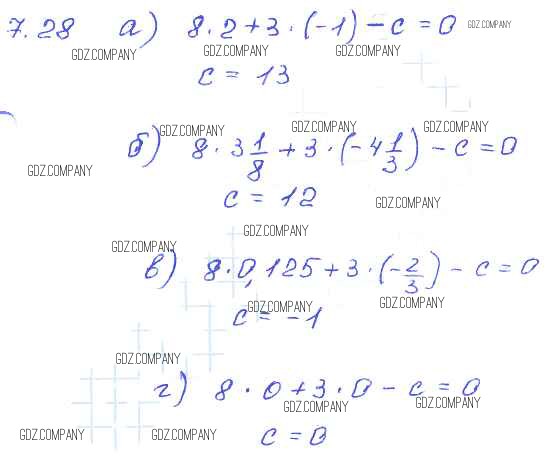 7.28 а) 8 · 2 + 3 · (-1) - c = 0 GDZ.COMPANY
GDZ.COMPANY GDZ.COMPANY GDZ.COMPANY
c = 13
GDZ.COMPANY GDZ.COMPANY GDZ.COMPANY
б) 8 · 3 1/8 + 3 · (-4 1/3) - c = 0
GDZ.COMPANY
c = 12 GDZ.COMPANY
GDZ.COMPANY
GDZ.COMPANY
в) 8 · 0,125 + 3 · (-2/3) - c = 0
GDZ.COMPANY GDZ.COMPANY
c = -1
GDZ.COMPANY
г) 8 · 0 + 3 · 0 - c = 0
GDZ.COMPANY GDZ.COMPANY
GDZ.COMPANY GDZ.COMPANY
c = 0